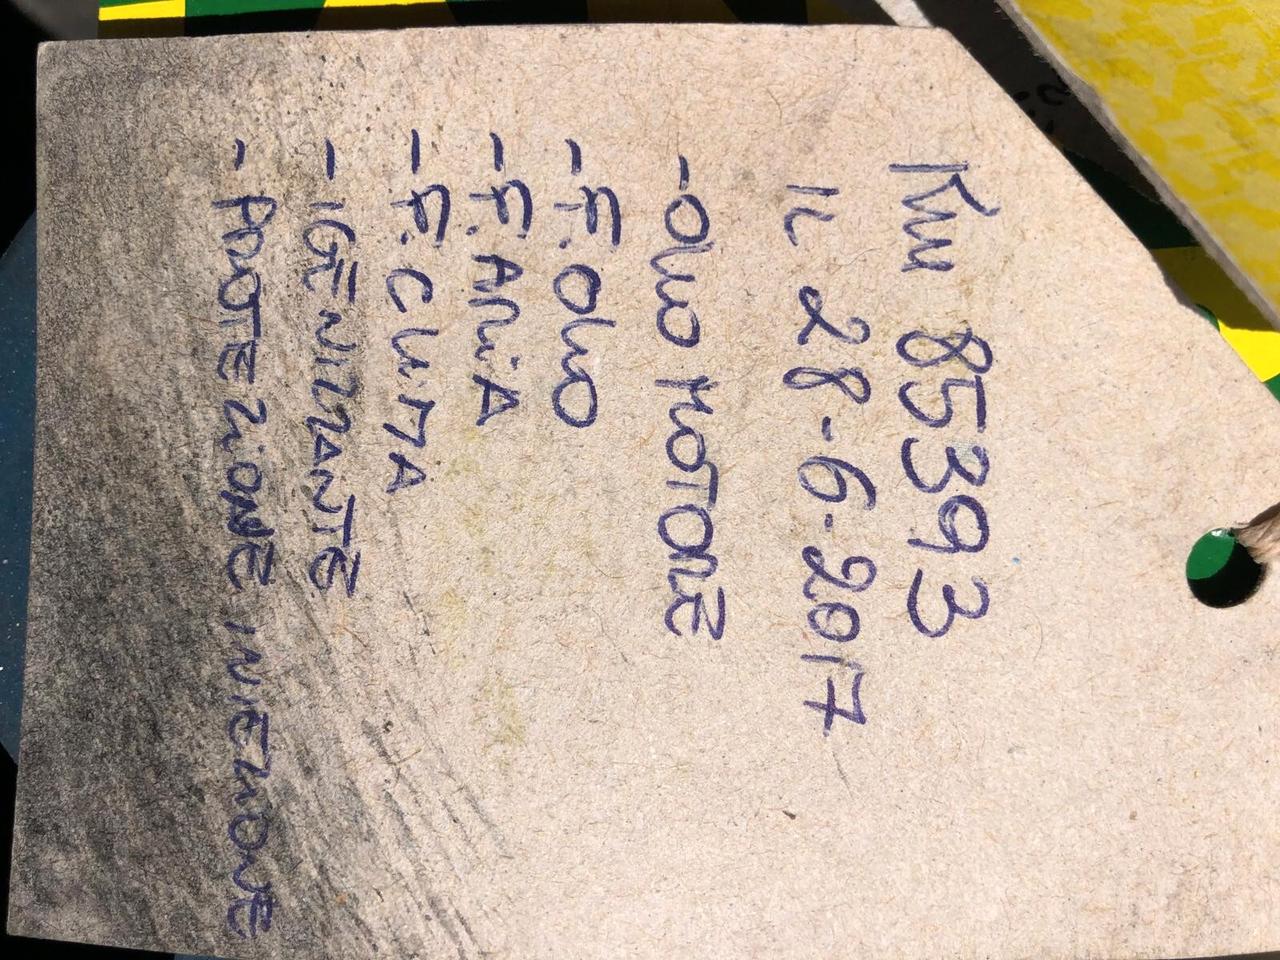 Km 85393
IL 28-6-2017
- OLIO MOTORE
- F. OLIO
- F. ARIA
- F. CLIMA
- IGENIZZANTE
- PROTEZIONE INIEZIONE